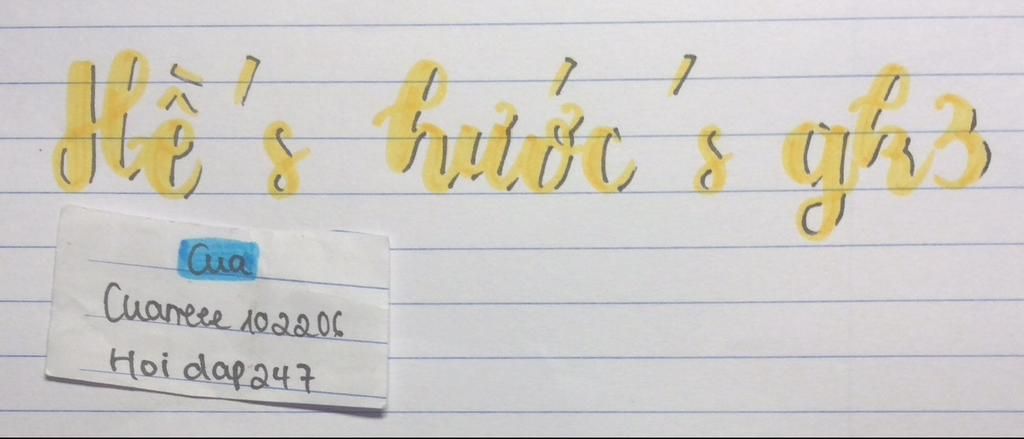 Hề's hước's gk3
Cua
Cuarreee 102206
Hoi dap247